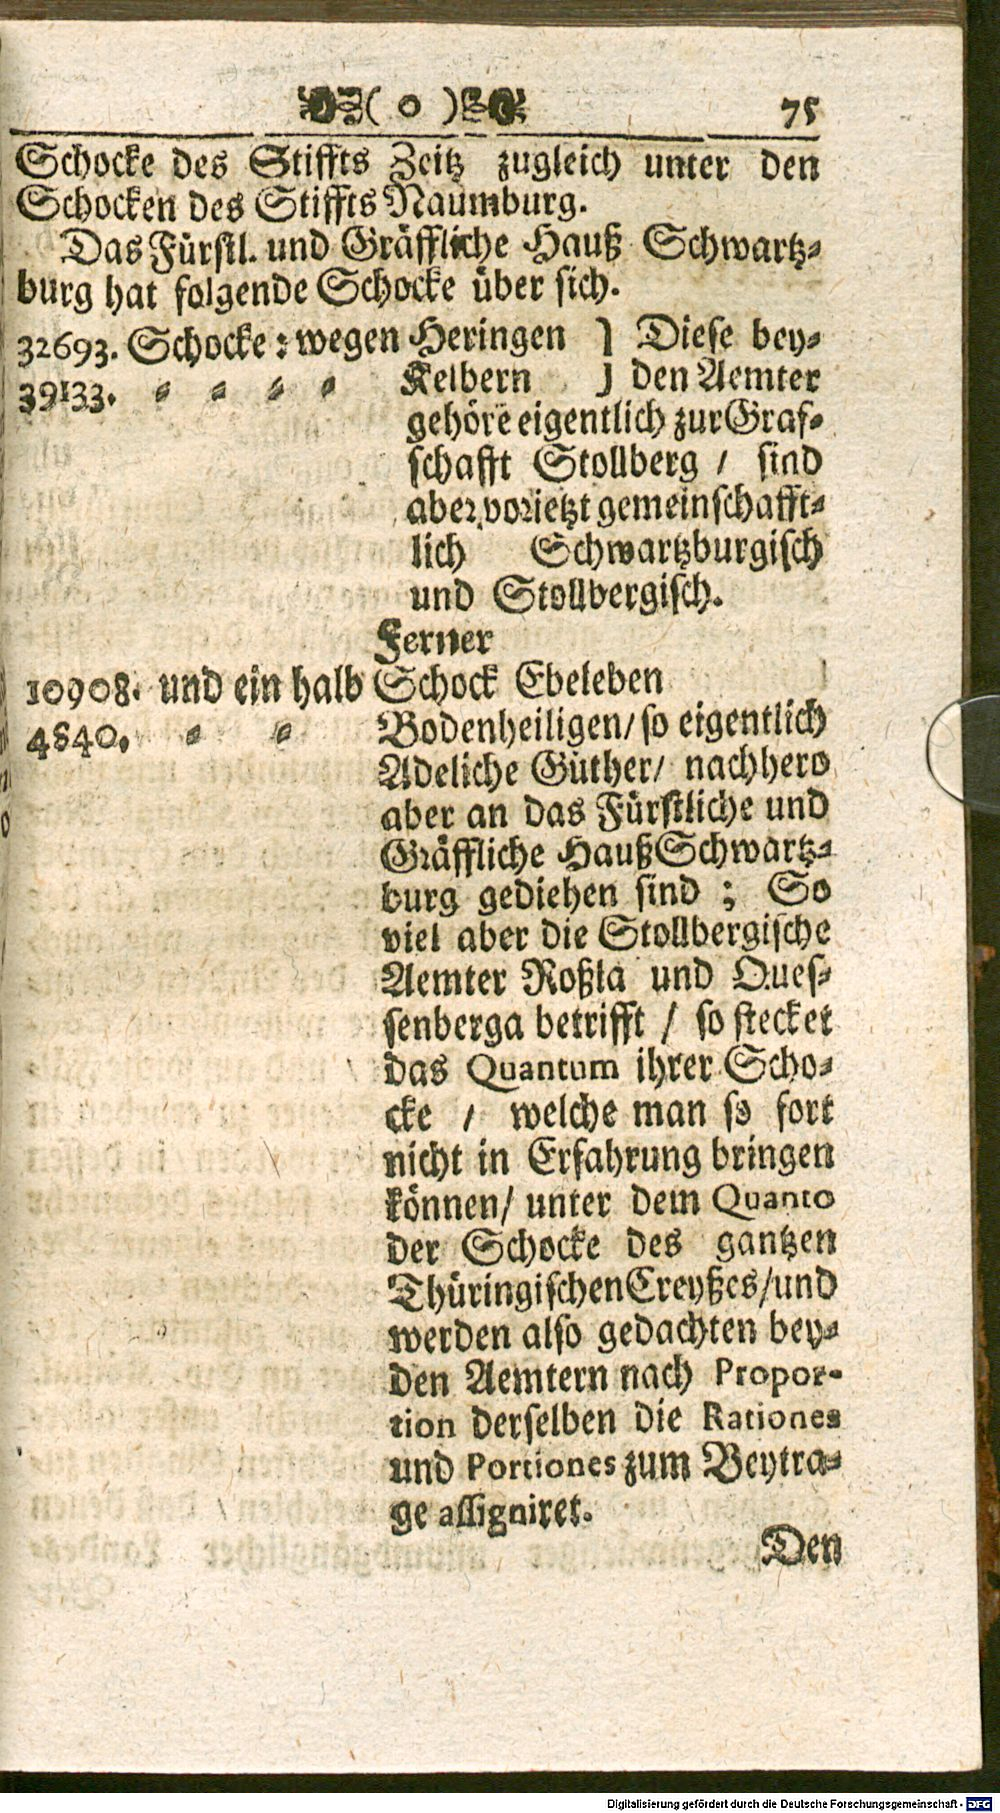 ( o ) 75
Schocke des Stiffts Zeitz zugleich unter den
Schocken des Stiffts Naumburg.
Das Fürstl. und Gräffliche Hauß Schwartz-
burg hat folgende Schocke über sich.
32693. Schocke: wegen Heringen ] Diese bey-
39133. = = = = Kelbern ] den Aemter
gehörē eigentlich zur Graf-
schafft Stollberg / sind
aber vorietzt gemeinschafft-
lich Schwartzburgisch
und Stollbergisch.
Ferner
10908. und ein halb Schock Ebeleben
4840. = = Bodenheiligen/ so eigentlich
Adeliche Güther/ nachhero
aber an das Fürstliche und
Gräffliche Hauß Schwartz-
burg gediehen sind ; So
viel aber die Stollbergische
Aemter Roßla und Ques-
senberga betrifft / so stecket
das Quantum ihrer Scho-
cke / welche man so fort
nicht in Erfahrung bringen
können/ unter dem Quanto
der Schocke des gantzen
Thüringischen Creyßes/und
werden also gedachten bey-
den Aemtern nach Propor-
tion derselben die Rationes
und Portiones zum Beytra-
ge assigniret.
Den
Digitalisierung gefördert durch die Deutsche Forschungsgemeinschaft - DFG